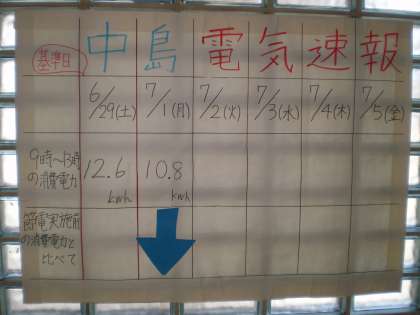 基準日
中島電気速報
6/29(土) 7/1(月) 7/2(火) 7/3(水) 7/4(木) 7/5(金)
9時〜13時
の消費電力
12.6 kwh 10.8 kwh
節電実施前
の消費電力と
比べて